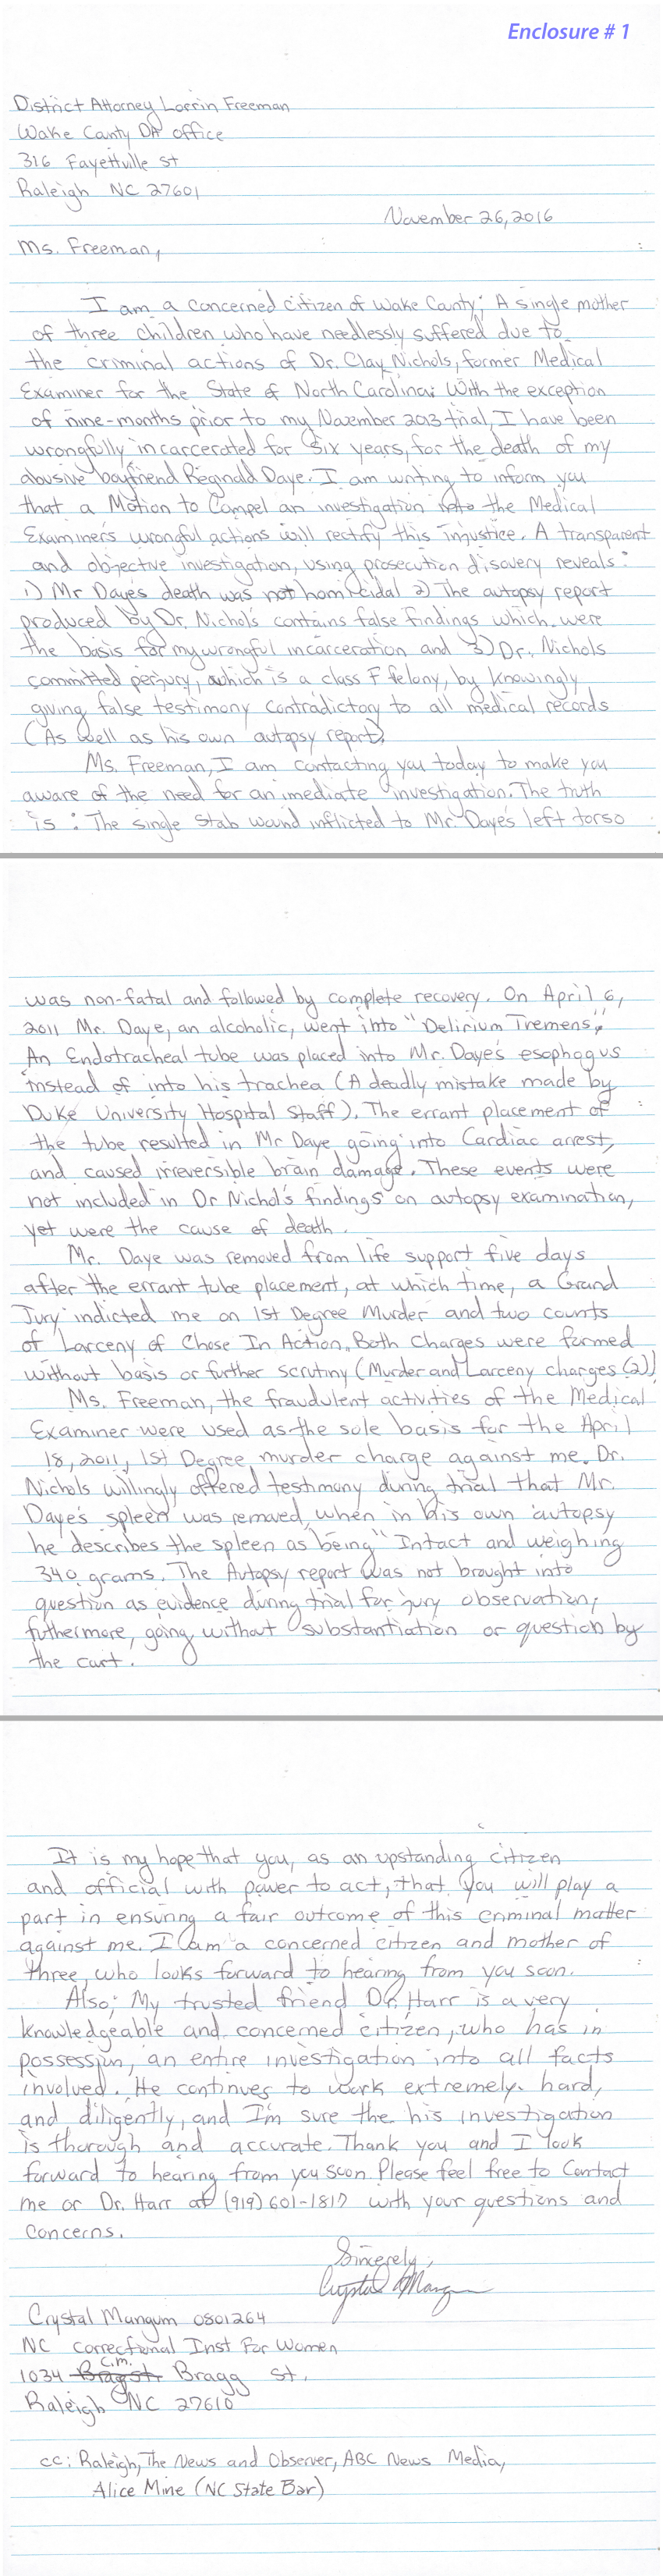 Enclosure # 1
District Attorney Lorrin Freeman
Wake County DA office
316 Fayettville St
Raleigh NC 27601
November 26, 2016
Ms. Freeman,
I am a concerned citizen of Wake County; A single mother
of three children who have needlessly suffered due to
the criminal actions of Dr. Clay Nichols, former Medical
Examiner for the State of North Carolina. With the exception
of nine-months prior to my November 2013 trial, I have been
wrongfully incarcerated for six years, for the death of my
abusive boyfriend Reginald Daye. I am writing to inform you
that a Motion to Compel an investigation into the Medical
Examiners wrongful actions will rectify this injustice. A transparent
and objective investigation, using prosecution disovery reveals:
1) Mr Dayes death was not homicidal 2) The autopsy report
produced by Dr. Nichols contains false findings which were
the basis for my wrongful incarceration and 3) Dr. Nichols
committed perjury, which is a class F felony, by knowingly
giving false testimony contradictory to all medical records
(As well as his own autopsy report).
Ms. Freeman, I am contacting you today to make you
aware of the need for an imediate investigation. The truth
is: The single stab wound inflicted to Mr. Daye's left torso
was non-fatal and followed by complete recovery. On April 6,
2011 Mr. Daye, an alcoholic, went into "Delirium Tremens."
An Endotracheal tube was placed into Mr. Daye's esophagus
instead of into his trachea (A deadly mistake made by
Duke University Hospital Staff). The errant placement of
the tube resulted in Mr Daye going into Cardiac arrest,
and caused irreversible brain damage. These events were
not included in Dr Nichol's findings on autopsy examination,
yet were the cause of death.
Mr. Daye was removed from life support five days
after the errant tube placement, at which time, a Grand
Jury indicted me on 1st Degree Murder and two counts
of Larceny of Chose In Action. Both Charges were formed
without basis or further scrutiny (Murder and Larceny charges (2))
Ms. Freeman, the fraudulent activities of the Medical
Examiner were used as the sole basis for the April
18, 2011, 1st Degree murder charge against me. Dr.
Nichols willingly offered testimony during trial that Mr.
Daye's spleen was removed, when in his own autopsy
he describes the spleen as being "Intact and weighing
340 grams. The Autopsy report was not brought into
question as evidence during trial for jury observation,
futhermore, going without substantiation or question by
the court.
It is my hope that you, as an upstanding citizen
and official with power to act, that you will play a
part in ensuring a fair outcome of this criminal matter
against me. I am a concerned citizen and mother of
three, who looks forward to hearing from you soon.
Also; My trusted friend Dr. Harr is a very
knowledgeable and concerned citizen, who has in
possession, an entire investigation into all facts
involved. He continues to work extremely hard,
and diligently, and I'm sure the his investigation
is thorough and accurate. Thank you and I look
forward to hearing from you soon. Please feel free to Contact
me or Dr. Harr at (919) 601-1817 with your questions and
Concerns.
Sincerely,
Crystal Mangum
Crystal Mangum 0801264
NC Correctional Inst For Women
C.M.
1034 Bragg St.
Raleigh NC 27610
cc: Raleigh, The News and Observer, ABC News Media,
Alice Mine (NC State Bar)